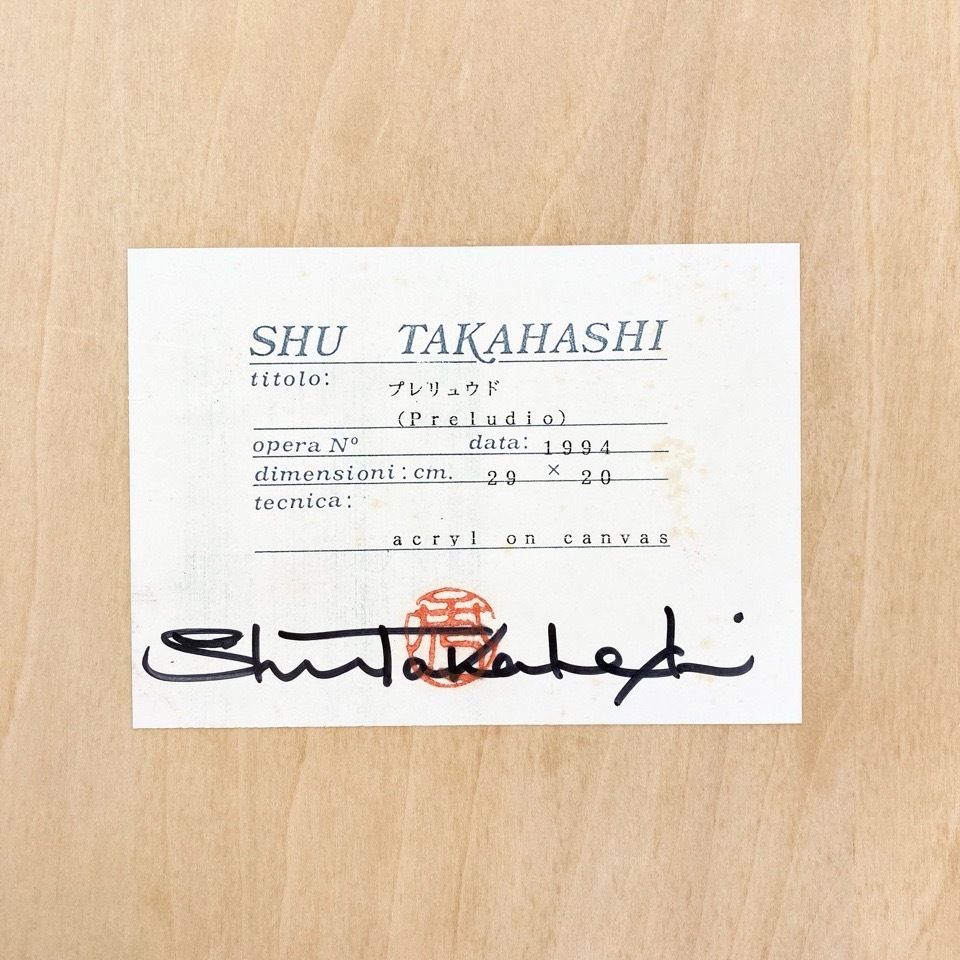 SHU TAKAHASHI
titolo: プレリュウド
(Preludio)
opera Nº data: 1994
dimensioni: cm. 29 × 20
tecnica:
acryl on canvas
Shu Takahashi